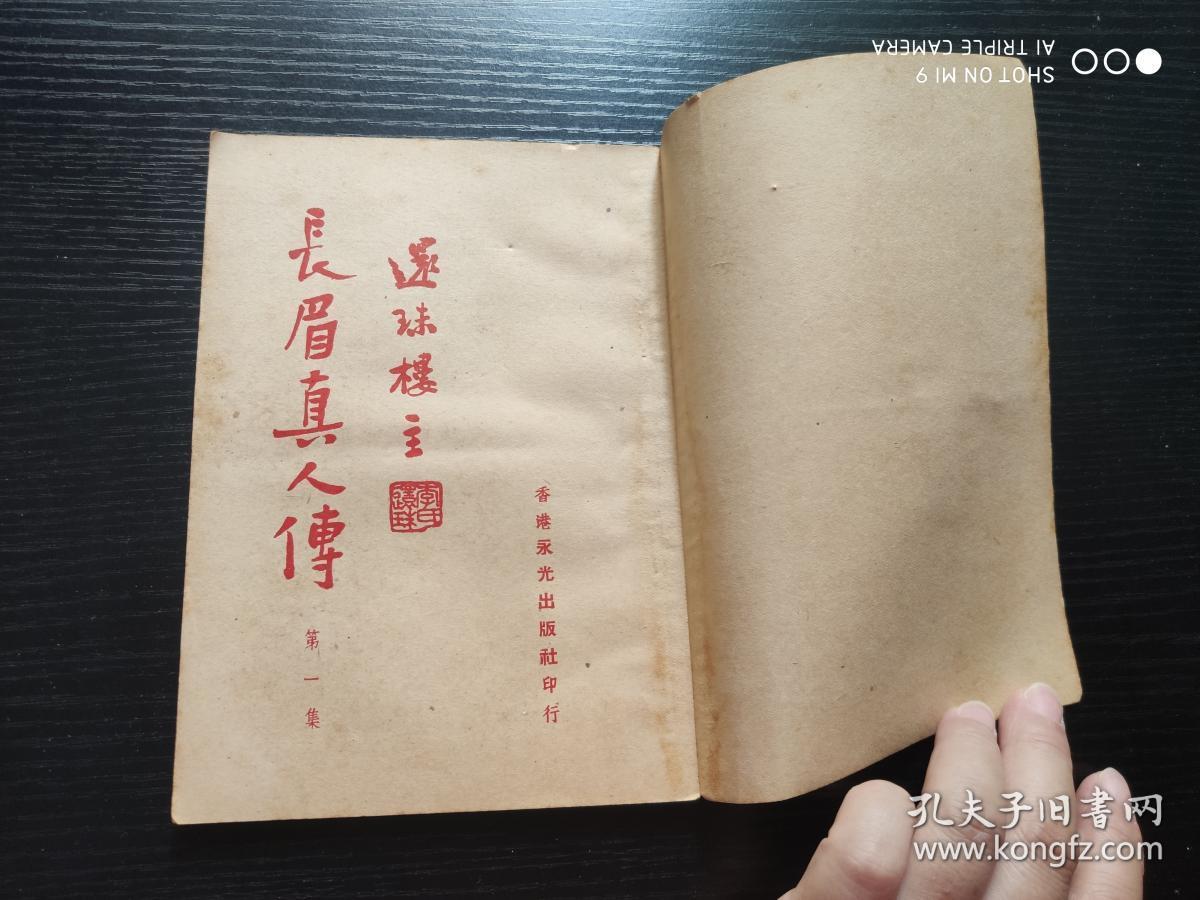 長眉真人傳
第一集
還珠樓主
李印還珠
香港永光出版社印行
SHOT ON MI 9
AI TRIPLE CAMERA
孔夫子旧书网
www.kongfz.com